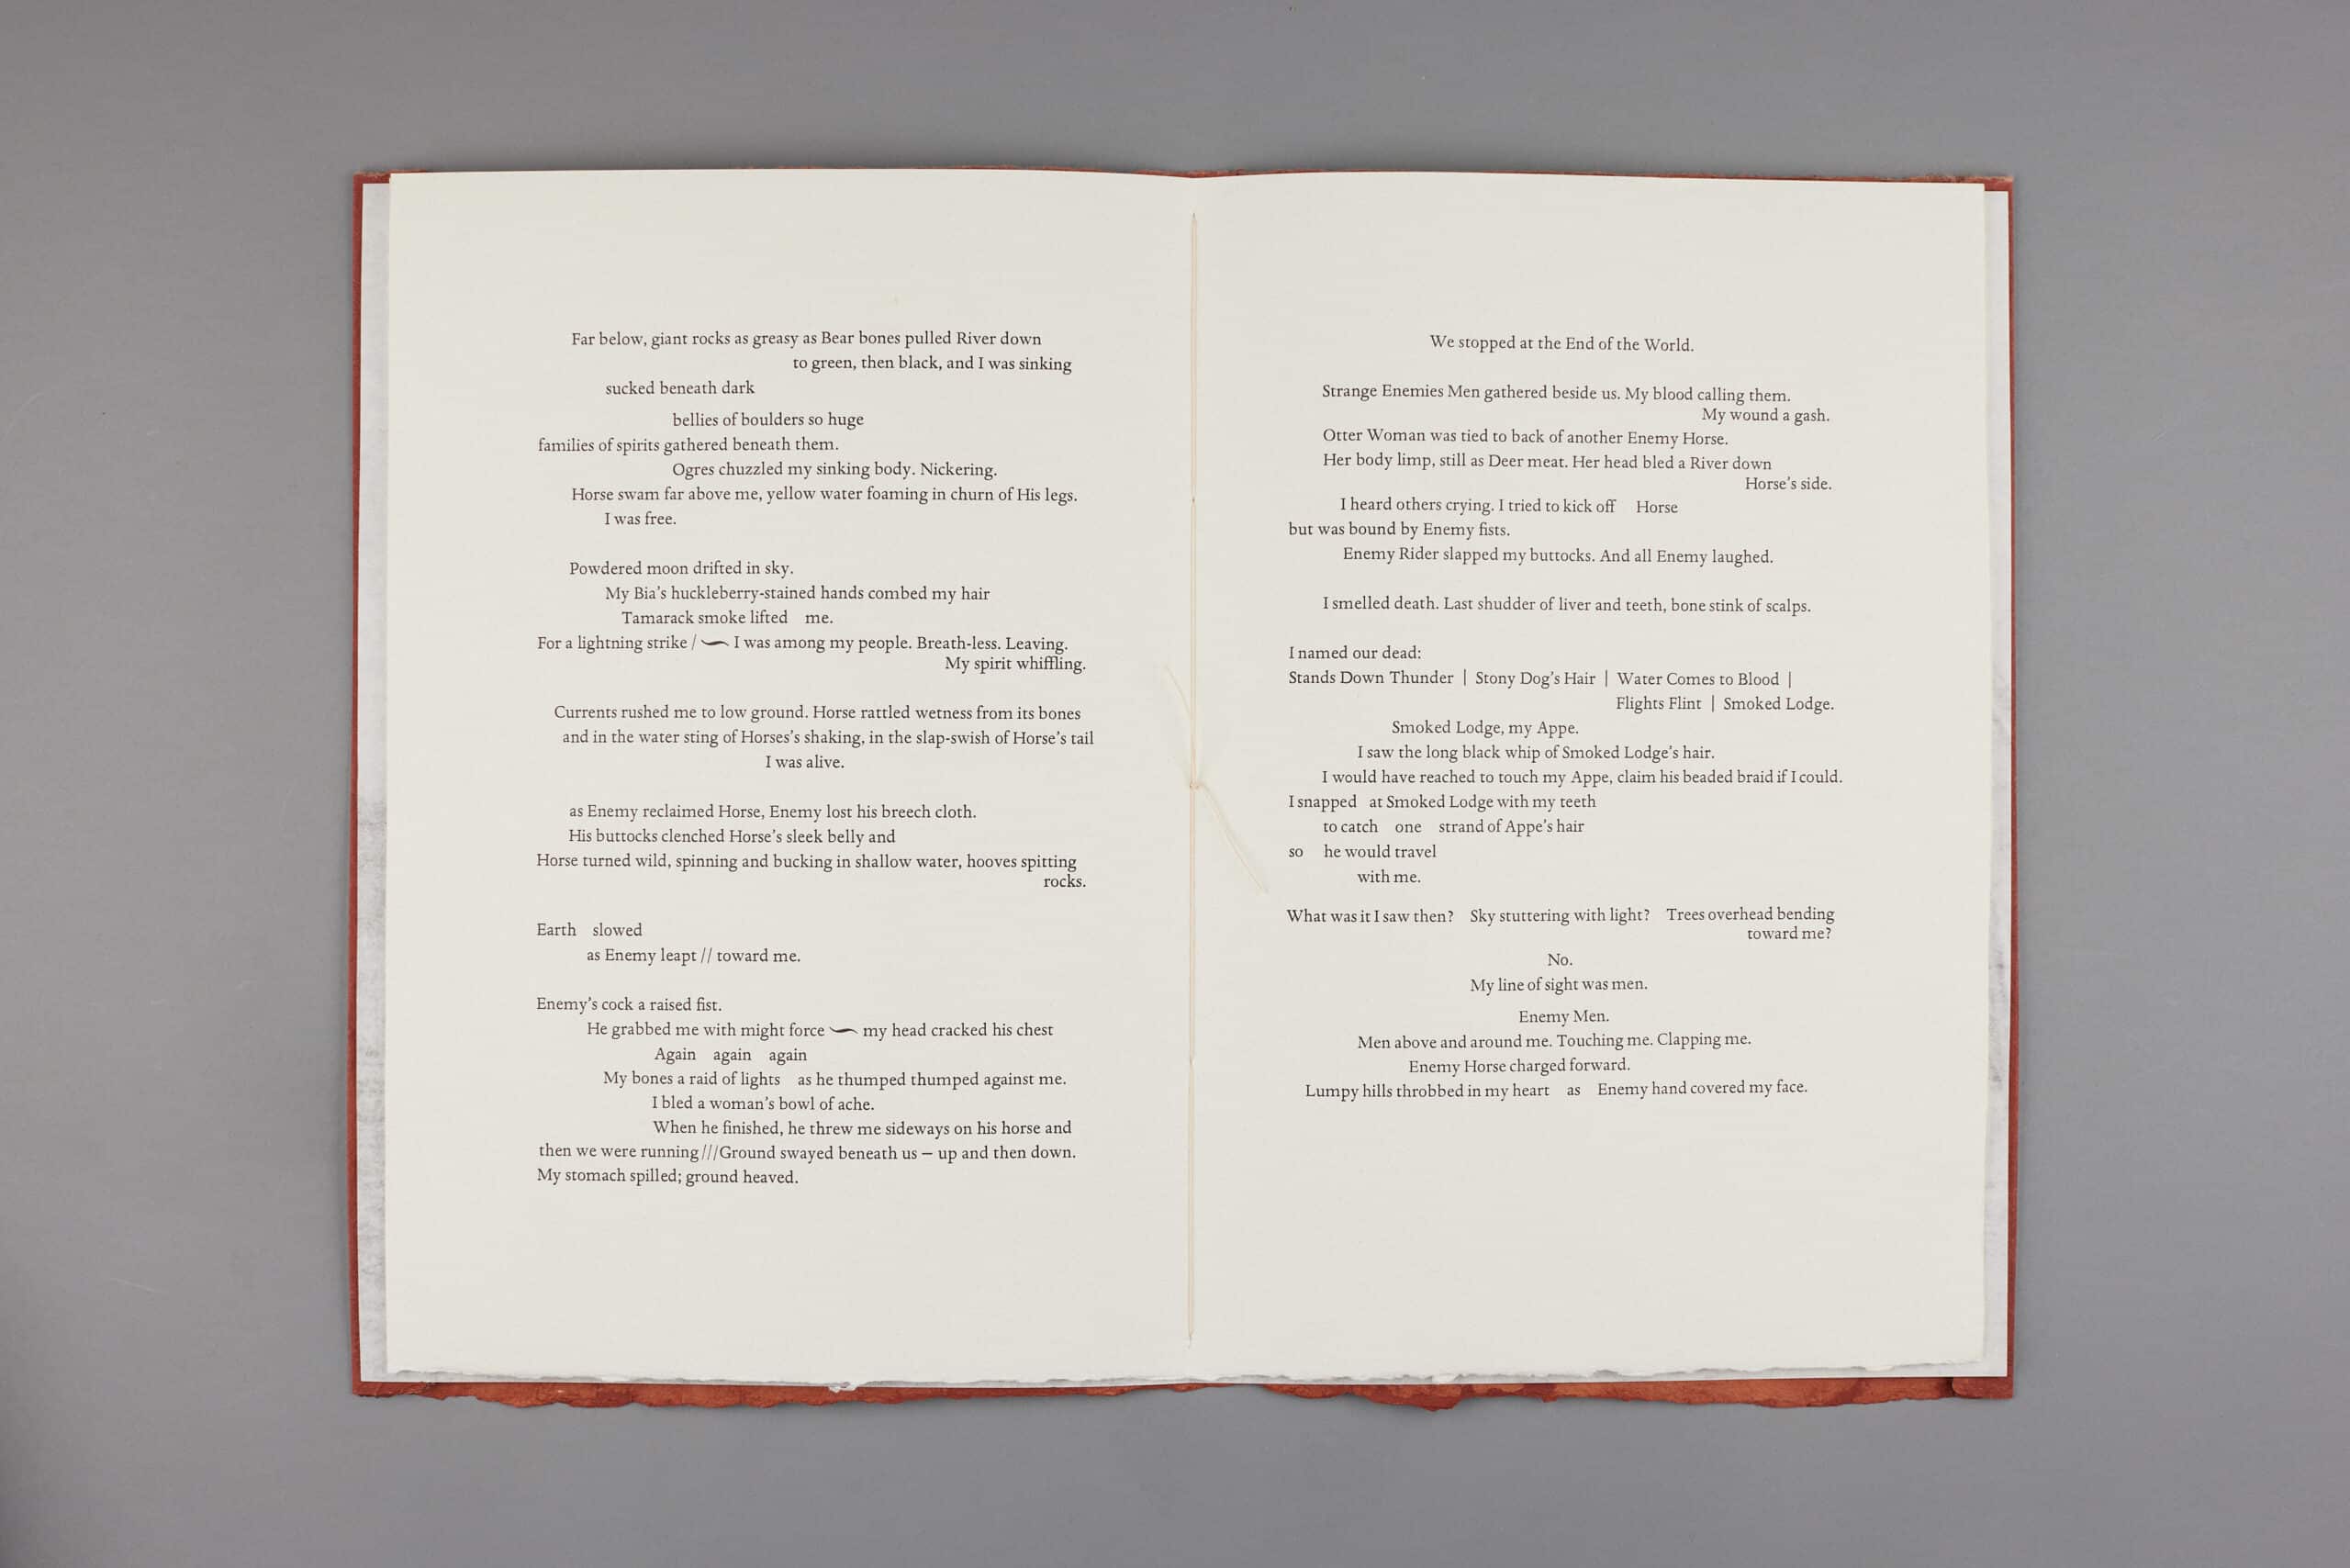 Far below, giant rocks as greasy as Bear bones pulled River down
to green, then black, and I was sinking
sucked beneath dark
bellies of boulders so huge
families of spirits gathered beneath them.
Ogres chuzzled my sinking body. Nickering.
Horse swam far above me, yellow water foaming in churn of His legs.
I was free.
Powdered moon drifted in sky.
My Bia's huckleberry-stained hands combed my hair
Tamarack smoke lifted me.
For a lightning strike / ⁓ I was among my people. Breath-less. Leaving.
My spirit whiffling.
Currents rushed me to low ground. Horse rattled wetness from its bones
and in the water sting of Horses's shaking, in the slap-swish of Horse's tail
I was alive.
as Enemy reclaimed Horse, Enemy lost his breech cloth.
His buttocks clenched Horse's sleek belly and
Horse turned wild, spinning and bucking in shallow water, hooves spitting
rocks.
Earth slowed
as Enemy leapt // toward me.
Enemy's cock a raised fist.
He grabbed me with might force ⁓ my head cracked his chest
Again again again
My bones a raid of lights as he thumped thumped against me.
I bled a woman's bowl of ache.
When he finished, he threw me sideways on his horse and
then we were running///Ground swayed beneath us – up and then down.
My stomach spilled; ground heaved.
We stopped at the End of the World.
Strange Enemies Men gathered beside us. My blood calling them.
My wound a gash.
Otter Woman was tied to back of another Enemy Horse.
Her body limp, still as Deer meat. Her head bled a River down
Horse's side.
I heard others crying. I tried to kick off Horse
but was bound by Enemy fists.
Enemy Rider slapped my buttocks. And all Enemy laughed.
I smelled death. Last shudder of liver and teeth, bone stink of scalps.
I named our dead:
Stands Down Thunder | Stony Dog's Hair | Water Comes to Blood |
Flights Flint | Smoked Lodge.
Smoked Lodge, my Appe.
I saw the long black whip of Smoked Lodge's hair.
I would have reached to touch my Appe, claim his beaded braid if I could.
I snapped at Smoked Lodge with my teeth
to catch one strand of Appe's hair
so he would travel
with me.
What was it I saw then? Sky stuttering with light? Trees overhead bending
toward me?
No.
My line of sight was men.
Enemy Men.
Men above and around me. Touching me. Clapping me.
Enemy Horse charged forward.
Lumpy hills throbbed in my heart as Enemy hand covered my face.